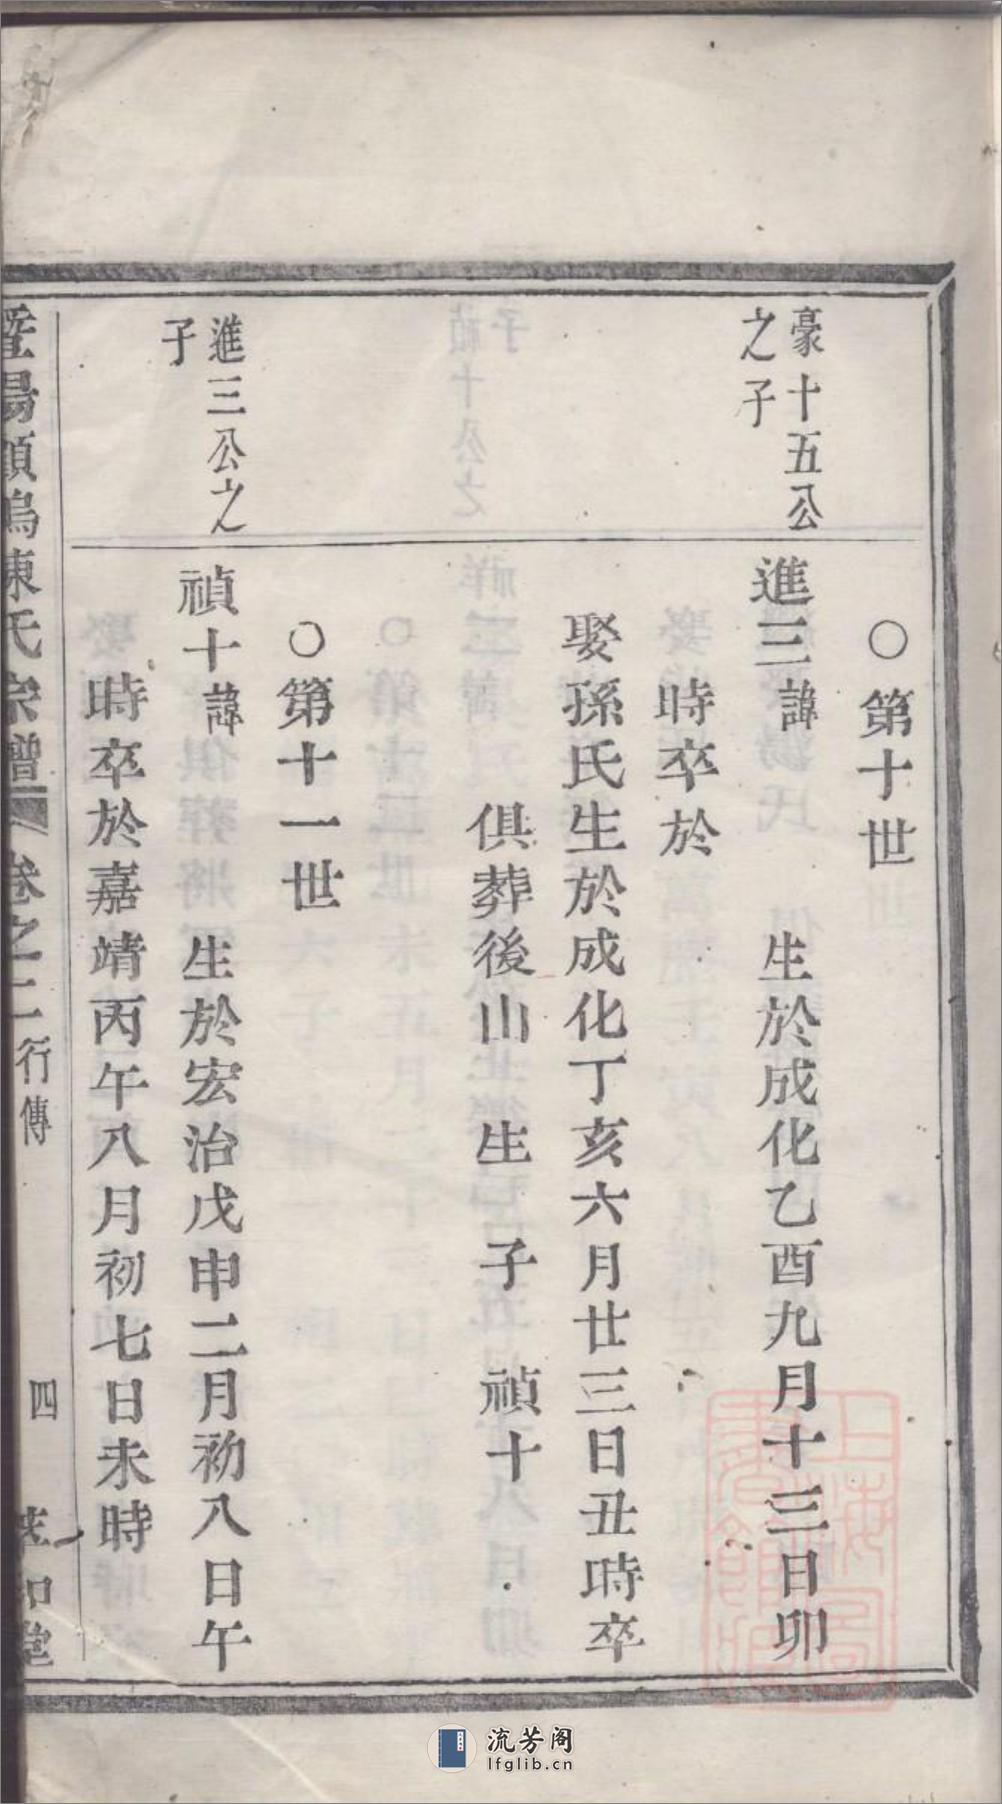 ○第十世
豪十五公
之子
進三諱 生於成化乙酉九月十三日卯
時卒於
娶孫氏生於成化丁亥六月廿三日丑時卒
俱葬後山 生 子 禎十
○第十一世
進三公之
子
禎十諱 生於宏治戊申二月初八日午
時卒於嘉靖丙午八月初七日未時
暨陽顧塢陳氏宗譜 卷之二 行傳 四
流芳阁
lfglib.cn